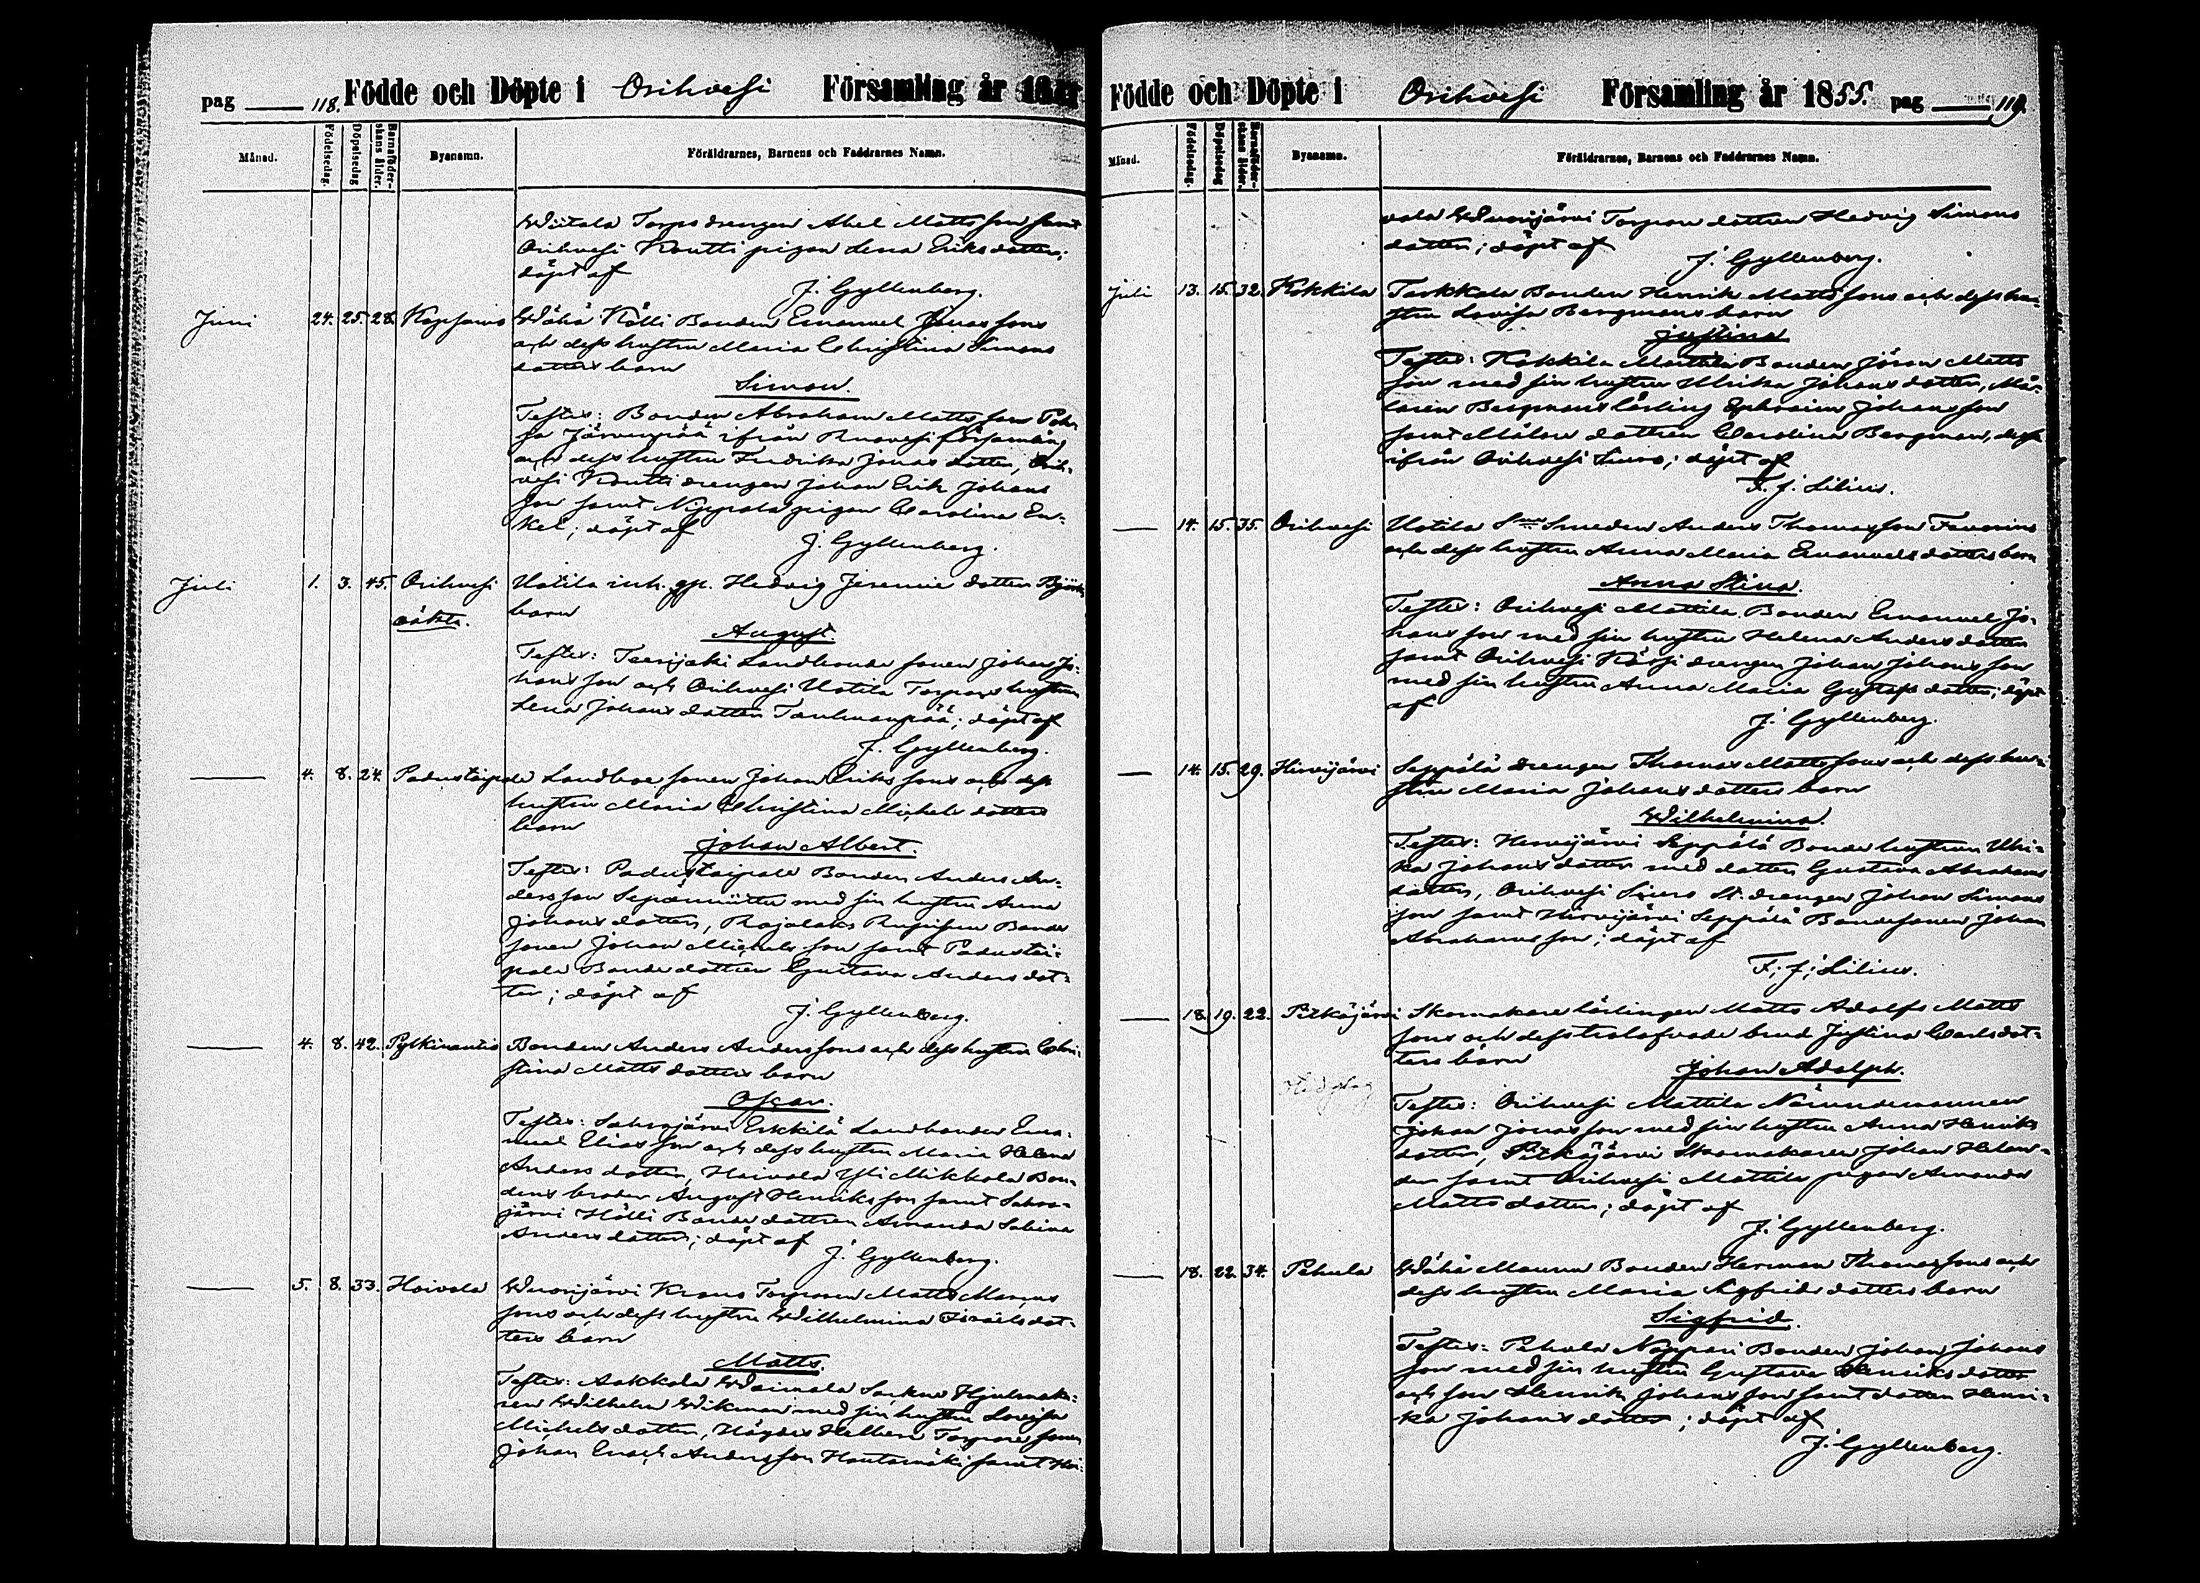 pag 118. Födde och Döpte i Orihvesi Församling år 1855
Månad. Födelsedag. Döpelsedag Barnaföderskans ålder. Bynamn. Föräldrarnes, Barnens och Faddrarnes Namn.
Torps drengen Abel Matts son samt
Orihvesi Koutti pigan Lena Eriks dotter;
döpt af
J. Gyllenberg.
Juni 24. 25. 28. Wähä Kölli Bonden Emanuel Jonas sons
och dess hustru Maria Christina Simons
dotters barn
Simon.
Testes: Bonden Abraham Matts son
Järvenpää ifrån Ruovesi församling
och dess hustru Fredrika Jonas dotter, Orih-
vesi Koutti drengen Johan Erik Johans
son samt pigan Carolina
döpt af
J. Gyllenberg.
Juli 1. 3. 45. Orihvesi Uotila inh. qp. Hedvig Jeremie dotter
oäkta. barn
August.
Testes: Teerijoki Landbonde sonen Johan Jo-
hans son och Orihvesi Uotila Torpars hustrun
Lena Johans dotter döpt af
J. Gyllenberg.
4. 8. 24. Padustaipale Landboe sonen Johan Eriks sons och dess
hustru Maria Christina Michels dotters
barn
Johan Albert.
Testes: Padustaipale Bonden Anders An-
ders son med sin hustru Anna
Johans dotter, Bonde
sonen Johan Michels son samt Padustai-
pale Bonde dottren Gustava Anders dot-
ter; döpt af
J. Gyllenberg.
4. 8. 42. Bonden Anders Anders sons och dess hustru Chri-
stina Matts dotters barn
Oscar.
Testes: Erkkilä Landbonden Ema-
nuel Elias son och dess hustru Maria Helena
Anders dotter, Hoivala Yli Mikkola Bon-
dens broder August Henriks son samt
järvi Hölli Bonde dottren Amanda Sabina
Anders dotter; döpt af
J. Gyllenberg.
5. 8. 33. Hoivala Wuorijärvi Krono Torparen Matts Marcus
sons och dess hustru Wilhelmina Israels dot-
ters barn
Matts.
Testes: Hjulmaka-
ren Wilhelm Wikman med sin hustru Lovisa
Michels dotter, Torpare sonen
Johan Enoch Anders son Hautamäki samt Hoi-
Födde och Döpte i Orihvesi Församling år 1855. pag 119.
Månad. Födelsedag. Döpelsedag Barnaföderskans ålder. Bynamn. Föräldrarnes, Barnens och Faddrarnes Namn.
vala Wuorijärvi Torpare dottren Hedvig Simons
dotter; döpt af
J. Gyllenberg.
Juli 13. 15. 32. Kokkila Bonden Henrik Matts sons och dess hu-
stru Lovisa Bergmans barn
Justina
Testes: Kokkila Mattila Bonden Jöran Matts
son med sin hustru Ulrika Johans dotter, Må-
laren Bergmans lärling Ephraim Johans son
samt Målare dottren Carolina Bergman,
ifrån Orihvesi Siuro; döpt af
F. J. Lilius.
14. 15. 35. Orihvesi Uotila Smeden Anders Thomas son Favorins
och dess hustru Anna Maria Emanuels dotters barn
Anna Stina.
Testes: Orihvesi Mattila Bonden Emanuel Jo-
hans son med sin hustru Helena Anders dotter
samt Orihvesi drengen Johan Johans son
med sin hustru Anna Maria Gustafs dotter; döpt
af
J. Gyllenberg.
14. 15. 29. Hirvijärvi Seppälä drengen Thomas Matts sons och dess hu-
stru Maria Johans dotters barn
Wilhelmina.
Testes: Hirvijärvi Seppälä Bonde hustrun Ulri-
ka Johans dotter med dotter Gustava Abrahams
dotter, Orihvesi Siuro St. drengen Johan Simons
son samt Hirvijärvi Seppälä Bondesonen Johan
Abrahams son; döpt af
F. J. Lilius.
18. 19. 22. Pitkäjärvi Skomakare lärlingen Matts Adolfs Matts
sons och dess trolofvade brud Justina Carls dot-
ters barn
Johan Adolph.
Testes: Orihvesi Mattila Nämndemannen
Johan Jonas son med sin hustru Anna Henriks
dotter, Pitkäjärvi Skomakaren Johan Helan-
der samt Orihvesi Mattila pigan Amanda
Matts dotter; döpt af
J. Gyllenberg.
18. 22. 34. Pehula Wähä Maunu Bonden Herman Thomas sons och
dess hustru Maria Sigfrids dotters barn
Sigfrid.
Testes: Pehula Bonden Johan Johans
son med sin hustru Gustava Henriks dotter
och son Henrik Johans son samt dotter Henri-
ka Johans dotter; döpt af
J. Gyllenberg.